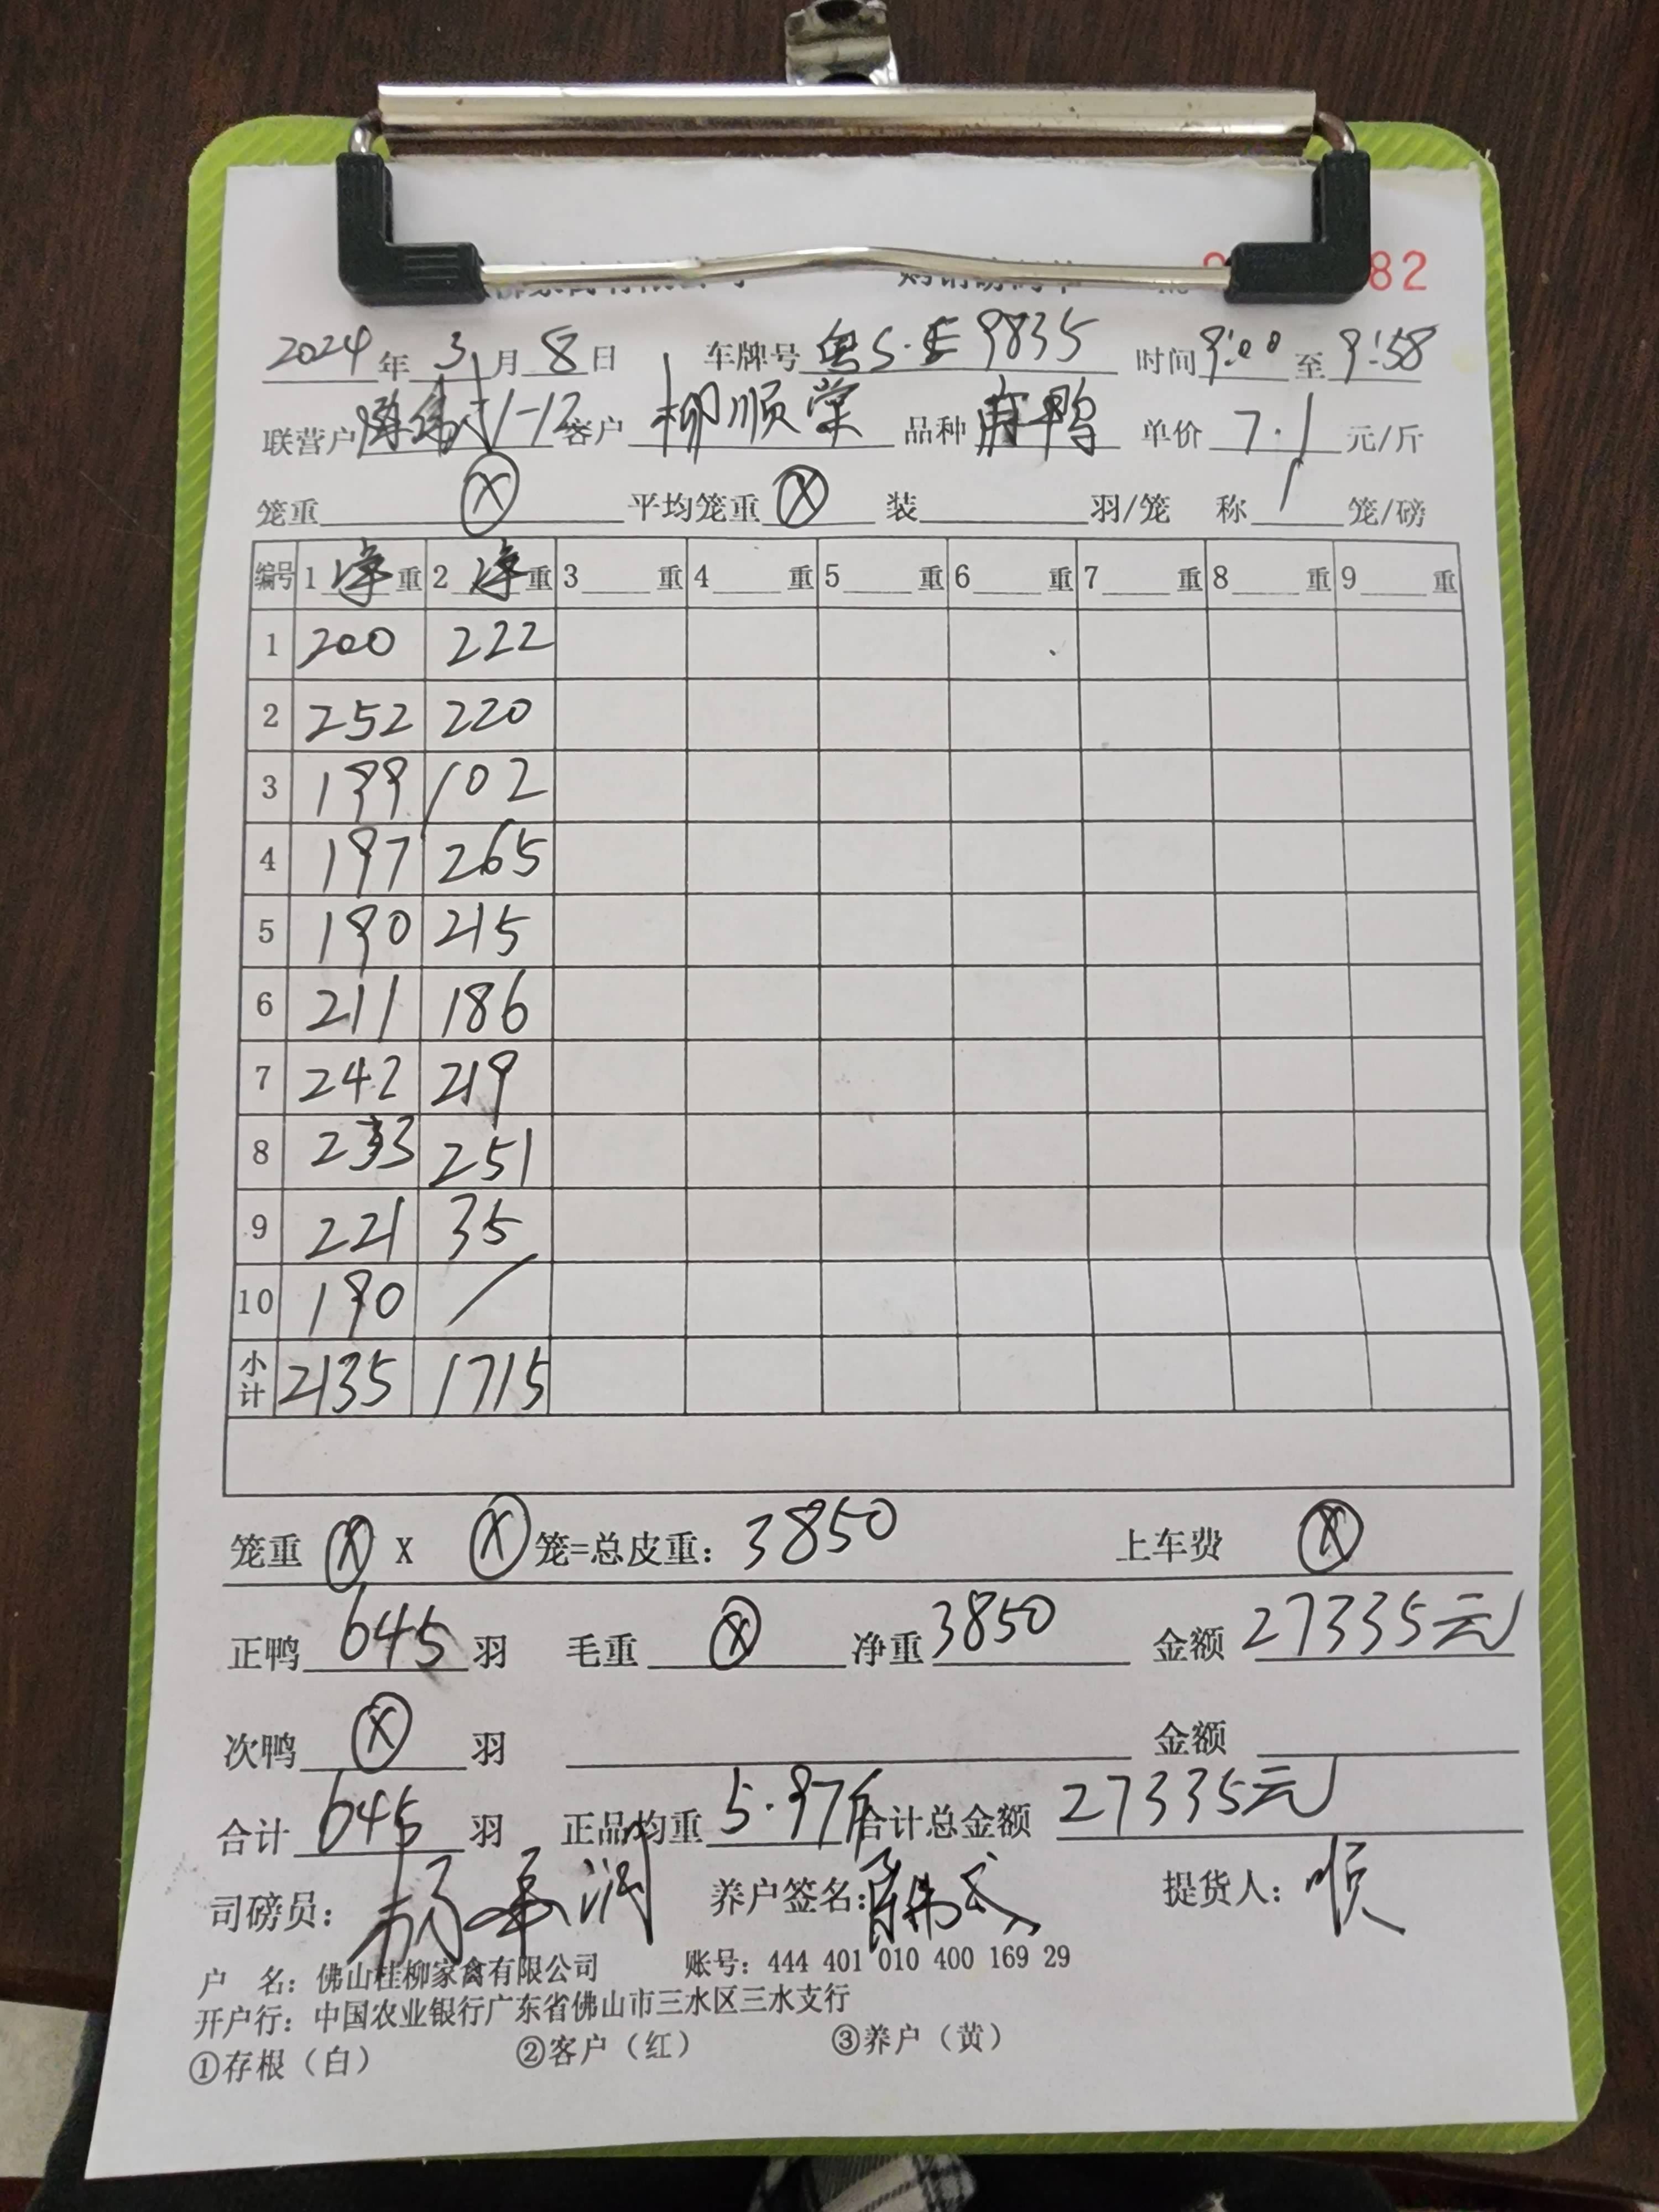 82
2024年3月8日 车牌号粤S·E9835 时间9:00至9:58
联营户 1-12 客户柳顺棠 品种麻鸭 单价7.1元/斤
笼重 Ⓧ 平均笼重 Ⓧ 装 羽/笼 称 1 笼/磅
编号 1 净 重 2 净 重 3 重 4 重 5 重 6 重 7 重 8 重 9 重
1 200 222
2 252 220
3 199 102
4 197 265
5 190 215
6 211 186
7 242 219
8 233 251
9 221 35
10 190 /
小计 2135 1715
笼重 Ⓧ X Ⓧ 笼=总皮重: 3850 上车费 Ⓧ
正鸭 645 羽 毛重 Ⓧ 净重 3850 金额 27335元
次鸭 Ⓧ 羽 金额
合计 645 羽 正品均重 5.97斤 合计总金额 27335元
司磅员: 养户签名: 提货人: 顺
户 名: 佛山桂柳家禽有限公司 账号: 444 401 010 400 169 29
开户行: 中国农业银行广东省佛山市三水区三水支行
①存根（白） ②客户（红） ③养户（黄）